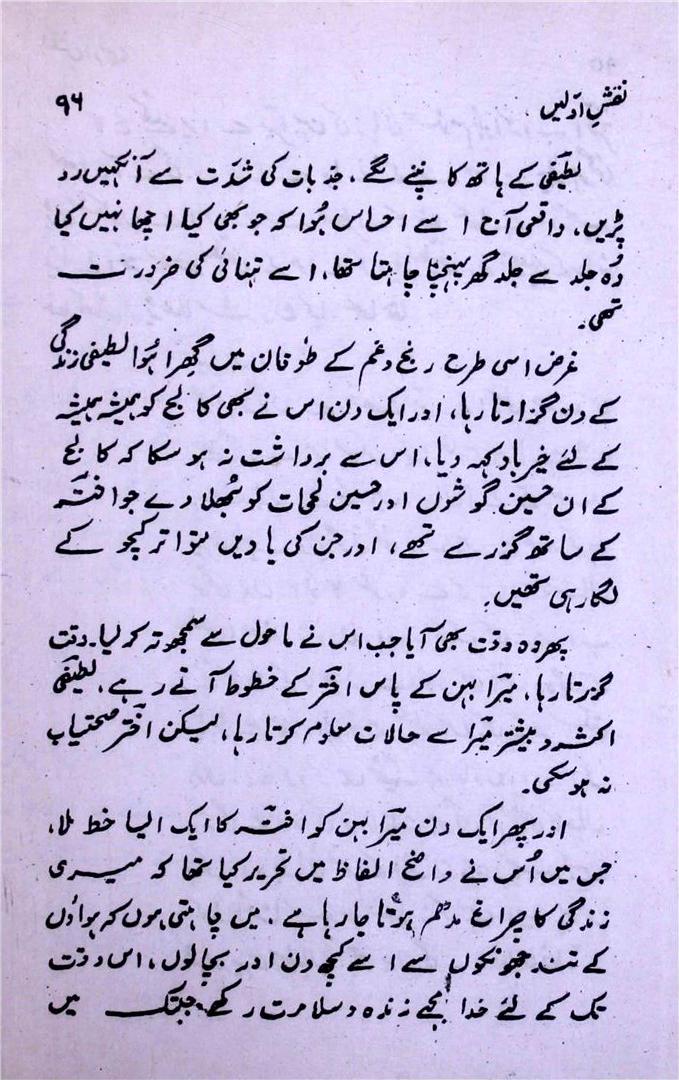 نقشِ اوّلیں
۹۶
لطیفی کے ہاتھ کانپنے لگے، جذبات کی شدّت سے آنکھیں رو
پڑیں، واقعی آج اسے احساس ہُوا کہ جو بھی کیا اچھا نہیں کیا
وُہ جلد سے جلد گھر پہنچنا چاہتا تھا، اسے تنہائی کی ضرورت
تھی۔
غرض اسی طرح رنج و غم کے طوفان میں گھِرا ہُوا لطیفی زندگی
کے دن گزارتا رہا، اور ایک دن اس نے بھی کالج کو ہمیشہ ہمیشہ
کے لئے خیرباد کہہ دیا، اس سے برداشت نہ ہو سکا کہ کالج
کے ان حسین گوشوں اور حسین لمحات کو بھُلا دے جو اخترؔ
کے ساتھ گزرے تھے، اور جن کی یادیں متواتر کچوکے
لگا رہی تھیں۔
پھر وہ وقت بھی آیا جب اس نے ماحول سے سمجھوتہ کر لیا۔ وقت
گزرتا رہا، میرؔا بہن کے پاس اخترؔ کے خطوط آتے رہے، لطیفیؔ
اکثر و بیشتر میرؔا سے حالات معلوم کرتا رہا، لیکن اخترؔ صحتیاب
نہ ہو سکی۔
اور پھر ایک دن میرؔا بہن کو اخترؔ کا ایک ایسا خط ملا،
جس میں اُس نے واضح الفاظ میں تحریر کیا تھا کہ میری
زندگی کا چراغ مدھم ہوتا جا رہا ہے۔ میں چاہتی ہوں کہ ہواؤں
کے تند جھونکوں سے اسے کچھ دن اور بچا لوں، اس وقت
تک کے لئے خدا مجھے زندہ و سلامت رکھے، جبتک میں